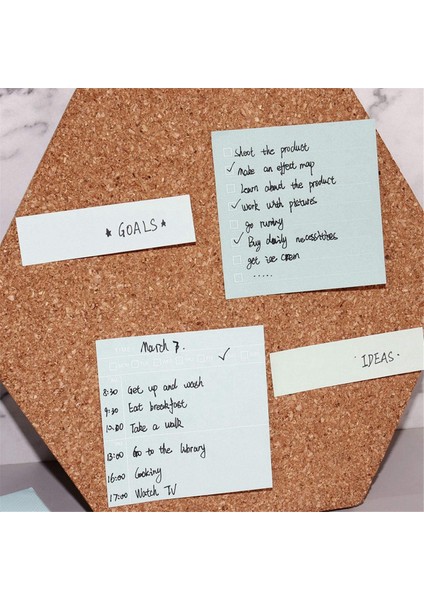 ★ GOALS ★
shoot the product
✓ make an effect map
learn about the product
✓ work with pictures
go runing
✓ Buy daily necessities
get ice cream
.....
March 7.
✓
8:30 Get up and wash
9:30 Eat breakfast
10:00 Take a walk
13:00 Go to the library
16:00 Cooking
17:00 Watch TV
IDEAS.